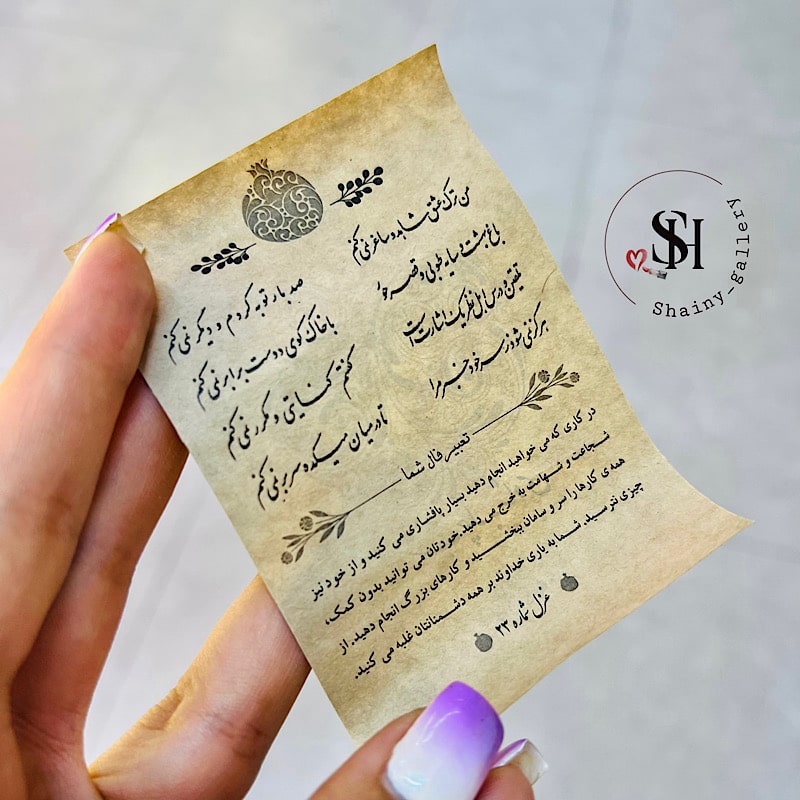 من ترک عشق شاهد و ساغر نمی کنم
صد بار توبه کردم و دیگر نمی کنم
باغ بهشت و سایه طوبی و قصر حور
با خاک کوی دوست برابر نمی کنم
تلقین و درس اهل نظر یک اشارت است
گفتم کنایتی و مکرر نمی کنم
هرگز نمی شود ز سر خود خبر مرا
تا در میان میکده سر بر نمی کنم
تعبیر فال شما
در کاری که می خواهید انجام دهید بسیار پافشاری می کنید و از خود نیز
شجاعت و شهامت به خرج می دهید. خودتان می توانید بدون کمک،
همه ی کارها را سر و سامان ببخشید و کارهای بزرگ انجام دهید. از
چیزی نترسید. شما به یاری خداوند بر همه دشمنانتان غلبه می کنید.
غزل شماره ۲۳
SH
Shainy-gallery